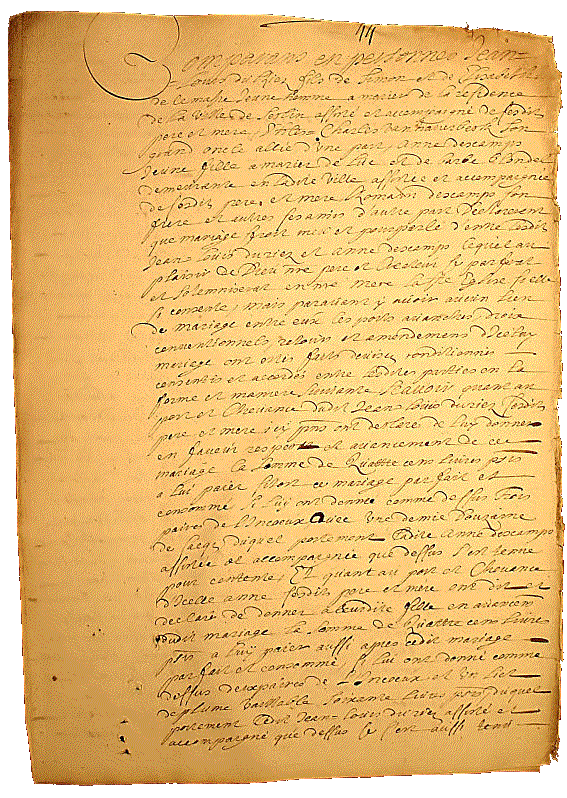 Comparans en personnes Jean
Louis du Riez fils de Simon et de
de le masre Jeune homme a marier de la residence
de la ville de assisté et accompagné de sesdits
pere et mere, Charles van son
grand oncle allié d'une part, Anne descamps
Jeune fille a marier de et de barbe blondel
demeurante en ladite ville assistée et accompagnée
de sesdits pere et mere Romain descamps son
frere et autres ses amis d'autre part Declarerent
que mariage estoit meu et pourparlé d'entre lesdits
Jean Louis duriez et Anne descamps lequel au
plaisir de Dieu nre pere et Createur se parferat
et solemniserat en nre mere la Ste Eglise si elle
sy consente, mais paravant y avoir aucun lien
de mariage entre eux les ports avanches droix
conventionnels retours et amendemens d'iceluy
mariage ont estes faits devises conditionnés
consentis et accordés entre lesdites parties en la
forme et maniere suivante Scavoir quant au
port et Chevance dudit Jean Louis duriez sesdits
pere et mere icy pns ont declaré de luy donner
en faveur respects et avancement de ce
mariage la somme de Quattre cens livres pts
a lui paier sitost ce mariage parfait et
consommé si lui ont donné comme dessus trois
paires de Linceux avec une demie douzaine
de sacqs duquel portement ladite Anne descamps
assistée et accompagnée que dessus s'est tenue
pour contente; Et quant au port et Chevance
d'icelle Anne sesdits pere et mere ont dit et
declaré de donner a leurdite fille en avancemt
dudit mariage la somme de Quattre cens livres
pts a luy paier aussi apres cedit mariage
parfait et consommé, si lui ont donné comme
dessus deux paires de Linceux et un lict
de plume vaillable soixante livres pts duquel
portement ledit Jean Louis duriez assisté et
accompagné que dessus se s'est aussi tenu